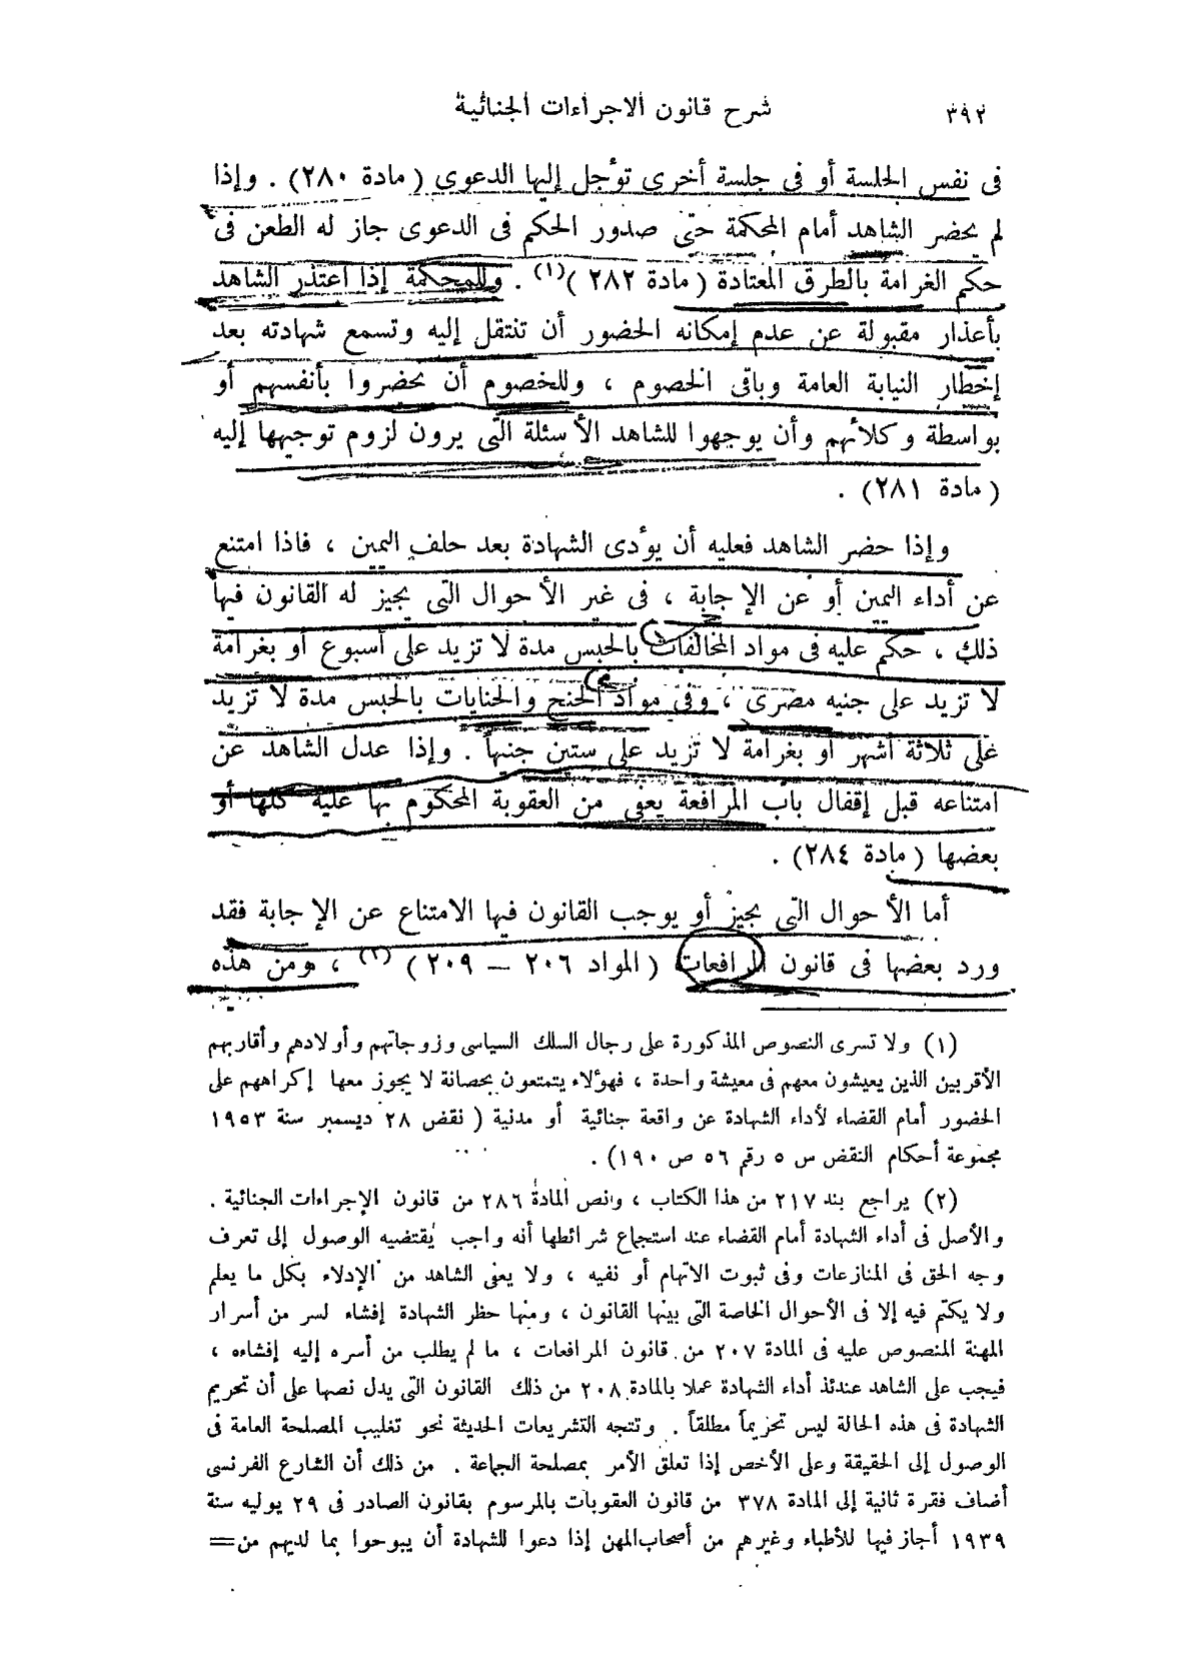 ٣٩٢
شرح قانون الاجراءات الجنائية
فى نفس الجلسة أو فى جلسة أخرى تؤجل إليها الدعوى ( مادة ٢٨٠) . وإذا
لم يحضر الشاهد أمام المحكمة حتى صدور الحكم فى الدعوى جاز له الطعن فى
حكم الغرامة بالطرق المعتادة ( مادة ٢٨٢ )(١) . وللمحكمة إذا اعتذر الشاهد
بأعذار مقبولة عن عدم إمكانه الحضور أن تنتقل إليه وتسمع شهادته بعد
إخطار النيابة العامة وباقى الخصوم ، وللخصوم أن يحضروا بأنفسهم أو
بواسطة وكلائهم وأن يوجهوا للشاهد الأسئلة التى يرون لزوم توجيهها إليه
( مادة ٢٨١) .
وإذا حضر الشاهد فعليه أن يؤدى الشهادة بعد حلف اليمين ، فاذا امتنع
عن أداء اليمين أو عن الإجابة ، فى غير الأحوال التى يجيز له القانون فيها
ذلك ، حكم عليه فى مواد المخالفات بالحبس مدة لا تزيد على أسبوع أو بغرامة
لا تزيد على جنيه مصرى ، وفى مواد الجنح والجنايات بالحبس مدة لا تزيد
على ثلاثة أشهر أو بغرامة لا تزيد على ستين جنيهاً . وإذا عدل الشاهد عن
امتناعه قبل إقفال باب المرافعة يعفى من العقوبة المحكوم بها عليه كلها أو
بعضها ( مادة ٢٨٤) .
أما الأحوال التى يجيز أو يوجب القانون فيها الامتناع عن الإجابة فقد
ورد بعضها فى قانون المرافعات ( المواد ٢٠٦ – ٢٠٩ ) (٢) ، ومن هذه
(١) ولا تسرى النصوص المذكورة على رجال السلك السياسى وزوجاتهم وأولادهم وأقاربهم
الأقربين الذين يعيشون معهم فى معيشة واحدة ، فهؤلاء يتمتعون بحصانة لا يجوز معها إكراههم على
الحضور أمام القضاء لأداء الشهادة عن واقعة جنائية أو مدنية ( نقض ٢٨ ديسمبر سنة ١٩٥٣
مجموعة أحكام النقض س ٥ رقم ٥٦ ص ١٩٠) .
(٢) يراجع بند ٢١٧ من هذا الكتاب ، ونص المادة ٢٨٦ من قانون الإجراءات الجنائية .
والأصل فى أداء الشهادة أمام القضاء عند استجماع شرائطها أنه واجب يقتضيه الوصول إلى تعرف
وجه الحق فى المنازعات وفى ثبوت الاتهام أو نفيه ، ولا يعفى الشاهد من الإدلاء بكل ما يعلم
ولا يكتم فيه إلا فى الأحوال الخاصة التى بينها القانون ، ومنها حظر الشهادة إفشاء لسر من أسرار
المهنة المنصوص عليه فى المادة ٢٠٧ من قانون المرافعات ، ما لم يطلب من أسره إليه إفشاءه ،
فيجب على الشاهد عندئذ أداء الشهادة عملا بالمادة ٢٠٨ من ذلك القانون التى يدل نصها على أن تحريم
الشهادة فى هذه الحالة ليس تحريماً مطلقاً . وتتجه التشريعات الحديثة نحو تغليب المصلحة العامة فى
الوصول إلى الحقيقة وعلى الأخص إذا تعلق الأمر بمصلحة الجماعة . من ذلك أن الشارع الفرنسى
أضاف فقرة ثانية إلى المادة ٣٧٨ من قانون العقوبات بالمرسوم بقانون الصادر فى ٢٩ يوليه سنة
١٩٣٩ أجاز فيها للأطباء وغيرهم من أصحاب المهن إذا دعوا للشهادة أن يبوحوا بما لديهم من =